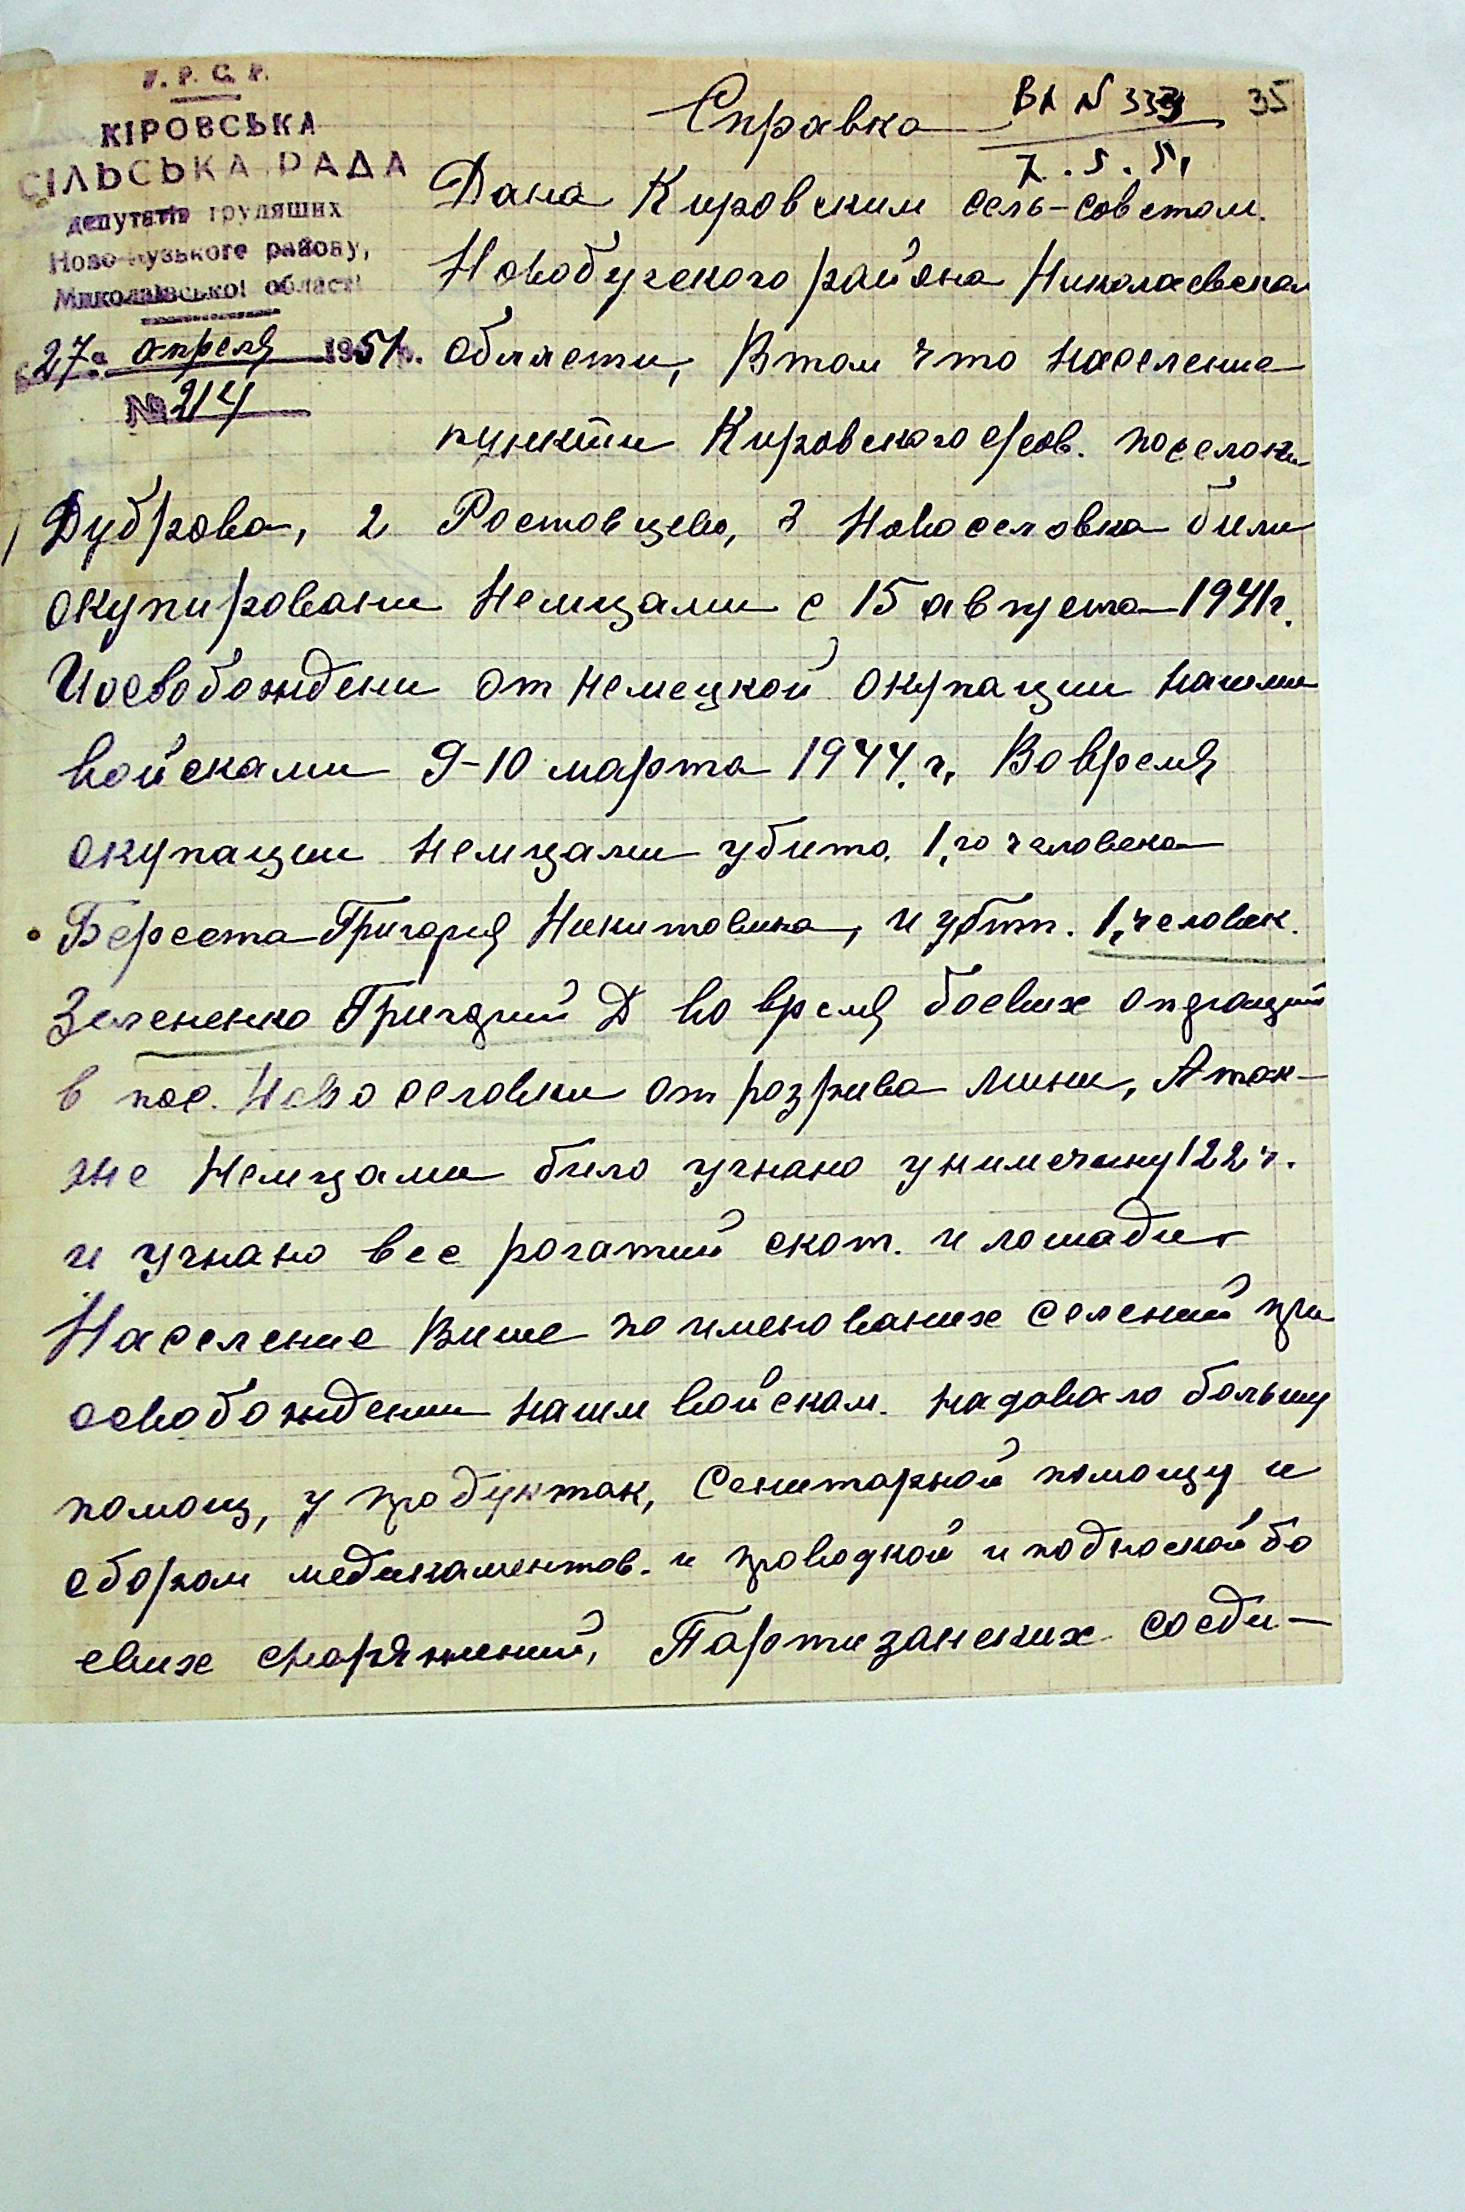 У. Р. С. Р.
КІРОВСЬКА
СІЛЬСЬКА РАДА
депутатів трудящих
Ново-Бузького району,
Миколаївської області
27 апреля 1951 р.
№ 214
35
Вх N 339
7.5.51
Справка
Дана Кировским сель-советом.
Новобугского района Николаевской
области, Втом что население
пункти Кировского с/сов. поселоки
1 Дуброва, 2 Ростовцево, 3 Новоселовка били
окупировани немцами с 15 августа 1941г.
Иосвобождени от немецкой окупации нашими
войсками 9-10 марта 1944.г. Вовремя
окупации немцами убито. 1,го человека
Береста Григория Никитовича, и убит. 1,человек.
Зелененко Григорий Д во время боевих операций
в пос. Новоселовки от розрива мини, Атак-
же немцами било угнано у нимечину 122 ч.
и угнано вес рогатий скот. и лошади.
Население Више поименованих селений при
освобождении нашим войскам. надовало большую
помощ, у продуктах, Сенитарной помощу и
сбором медикаментов. и проводкой и подноской бо
евих снаряжений, Партизанских соеди-